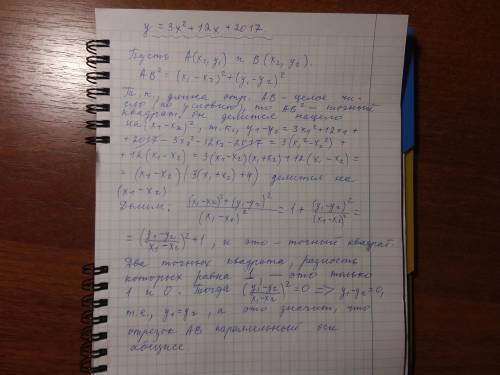 y = 3x² + 12x + 2017
Пусть A(x₁, y₁) и B(x₂, y₂).
AB² = (x₁ - x₂)² + (y₁ - y₂)²
Т.к. длина отр. AB - целое чи-
сло (по условию), то AB² - точный
квадрат. Он делится нацело
на (x₁ - x₂)², т.к. y₁ - y₂ = 3x₁² + 12x₁ +
+ 2017 - 3x₂² - 12x₂ - 2017 = 3(x₁² - x₂²) +
+ 12(x₁ - x₂) = 3(x₁ - x₂)(x₁ + x₂) + 12(x₁ - x₂) =
= (x₁ - x₂)(3(x₁ + x₂) + 4) делится на
(x₁ - x₂)
Делим: ((x₁ - x₂)² + (y₁ - y₂)²)/(x₁ - x₂)² = 1 + (y₁ - y₂)²/(x₁ - x₂)² =
= ((y₁ - y₂)/(x₁ - x₂))² + 1, и это - точный квадрат.
Два точных квадрата, разность
которых равна 1, - это только
1 и 0. Тогда ((y₁ - y₂)/(x₁ - x₂))² = 0 => y₁ - y₂ = 0,
т.к. y₁ = y₂, а это значит, что
отрезок AB параллельный оси
абсцисс